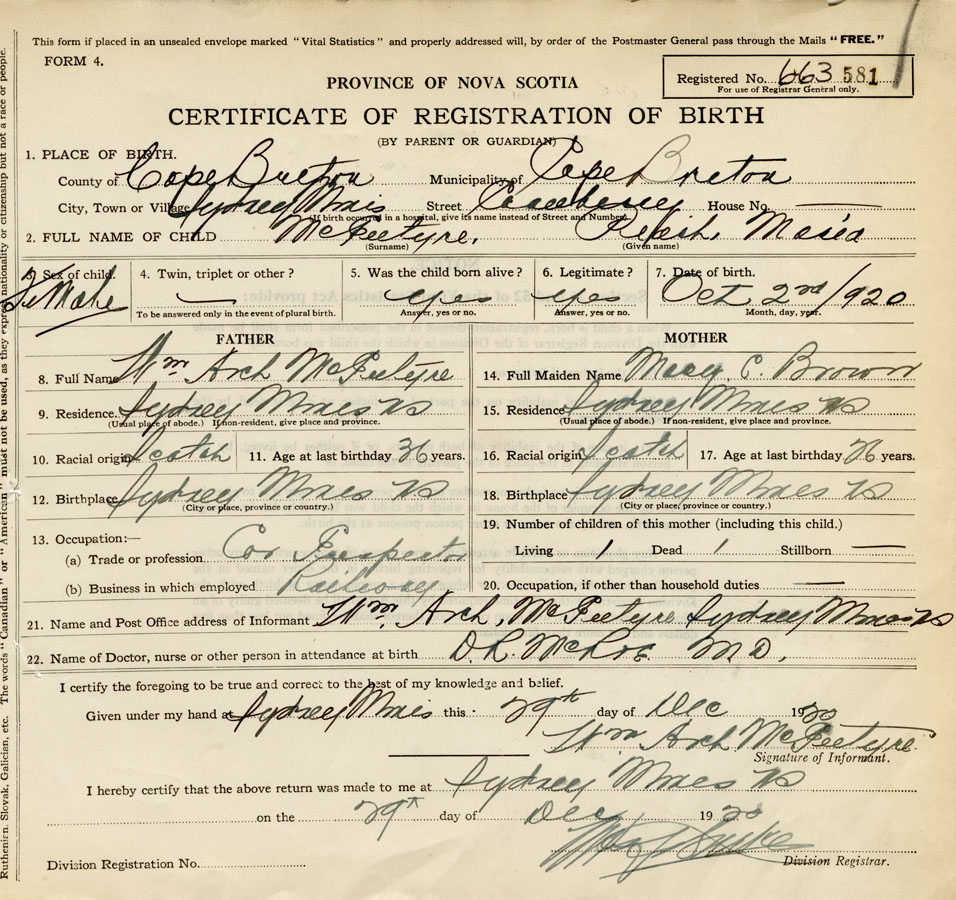 This form if placed in an unsealed envelope marked "Vital Statistics" and properly addressed will, by order of the Postmaster General pass through the Mails "FREE."
FORM 4.
Registered No. 663 581
For use of Registrar General only.
PROVINCE OF NOVA SCOTIA
CERTIFICATE OF REGISTRATION OF BIRTH
(BY PARENT OR GUARDIAN)
1. PLACE OF BIRTH.
County of Cape Breton Municipality of Cape Breton
City, Town or Village Sydney Mines Street House No.
(If birth occurred in a hospital, give its name instead of Street and Number)
2. FULL NAME OF CHILD
(Surname) (Given name)
3. Sex of child. 4. Twin, triplet or other? 5. Was the child born alive? 6. Legitimate? 7. Date of birth.
FeMale — yes yes Oct 2nd/1920
To be answered only in the event of plural birth. Answer, yes or no. Answer, yes or no. Month, day, year.
FATHER MOTHER
8. Full Name Wm Arch 14. Full Maiden Name Mary C. Brown
9. Residence Sydney Mines NS 15. Residence Sydney Mines NS
(Usual place of abode.) If non-resident, give place and province. (Usual place of abode.) If non-resident, give place and province.
10. Racial origin Scotch 11. Age at last birthday 36 years. 16. Racial origin Scotch 17. Age at last birthday years.
12. Birthplace Sydney Mines NS 18. Birthplace Sydney Mines NS
(City or place, province or country.) (City or place, province or country.)
13. Occupation:— 19. Number of children of this mother (including this child.)
(a) Trade or profession Car Inspector Living 1 Dead 1 Stillborn —
(b) Business in which employed Railway 20. Occupation, if other than household duties —
21. Name and Post Office address of Informant Wm Arch. Sydney Mines NS
22. Name of Doctor, nurse or other person in attendance at birth M.D.
I certify the foregoing to be true and correct to the best of my knowledge and belief.
Given under my hand at Sydney Mines this 29th day of Dec 1920
Wm Arch
Signature of Informant.
I hereby certify that the above return was made to me at Sydney Mines NS
on the 29th day of Dec 1920
Division Registration No. Division Registrar.
Ruthenian, Slovak, Galician, etc. The words "Canadian" or "American" must not be used, as they express nationality or citizenship but not a race or people.